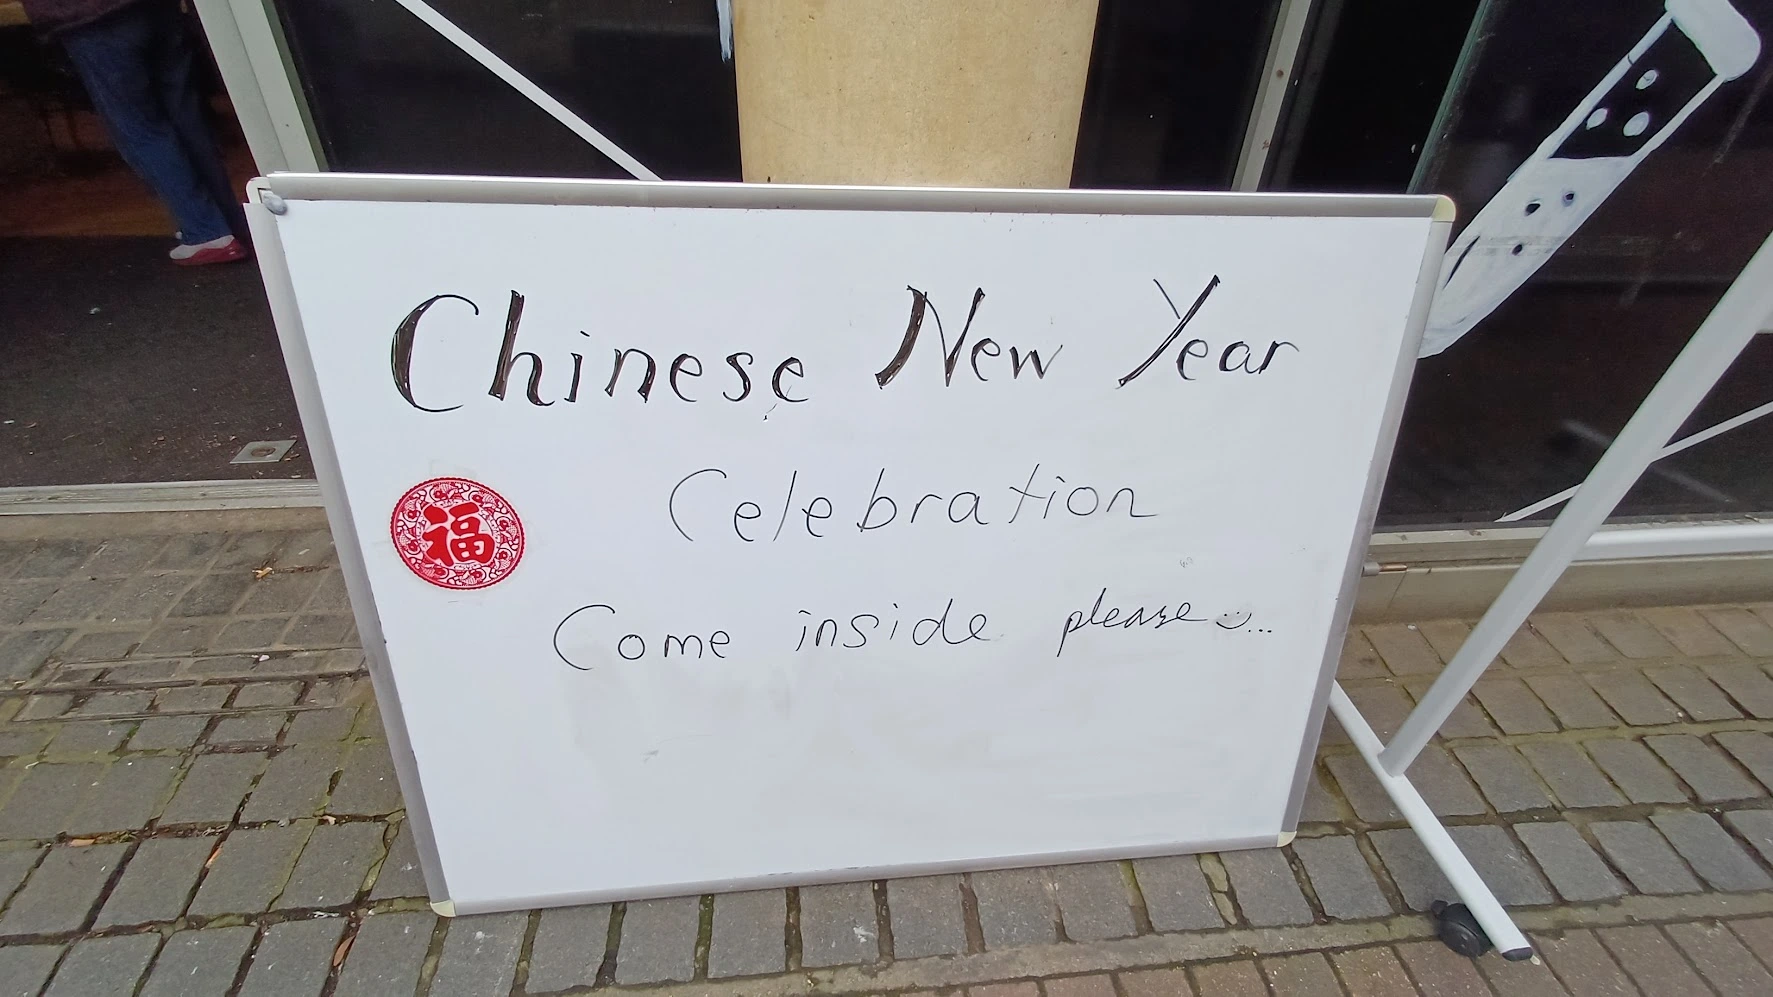 Chinese New Year
Celebration
福
Come inside please :)...